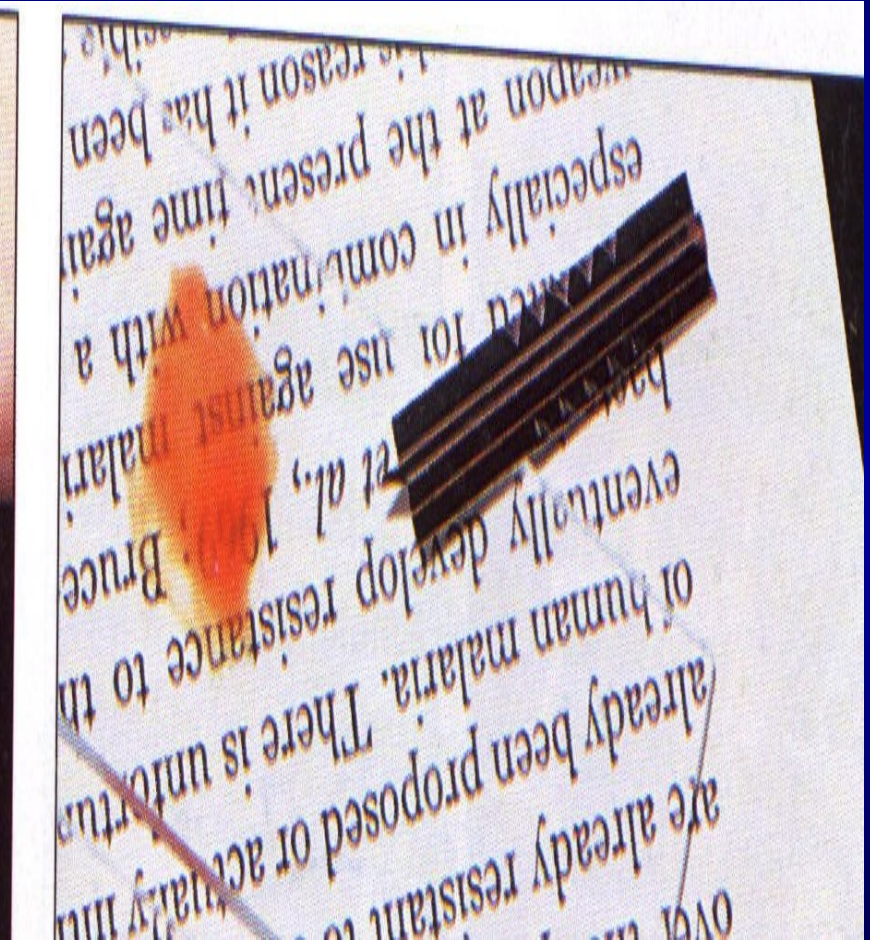 over the
are already resistant to
already been proposed or actually
of human malaria. There is
eventually develop resistance to
et al., Bruce
for use against
especially in combination with a
weapon at the present time
reason it has been